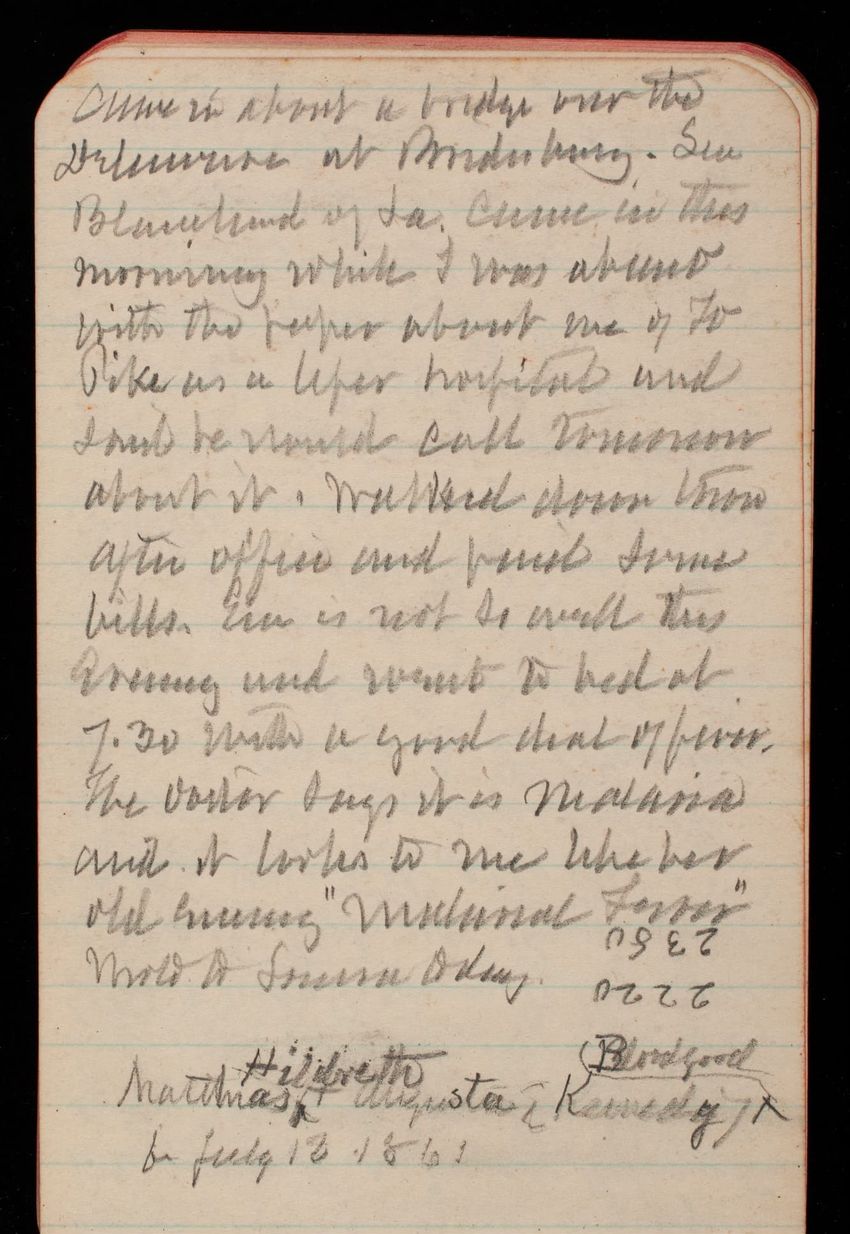 Came in about a bridge over the
Delaware at Bordenburg. Sen
Blanchard of La. Came in this
morning while I was absent
with the paper about use of Ft
Pike as a leper hospital and
said he would call tomorrow
about it. Walked down town
after office and paid some
bills. Eva is not so well this
evening and went to bed at
7.30 with a good deal of fever.
The doctor says it is Malaria
and it looks to me like her
old enemy "Malarial Fever"
Wrote to today.
2350
2220
Hildreth (Bloodgood
Matthias & Augusta Kennedy)
b July 12 1861